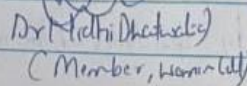 Dr Nidhi Dhatwalia)
(Member, Women Cell)